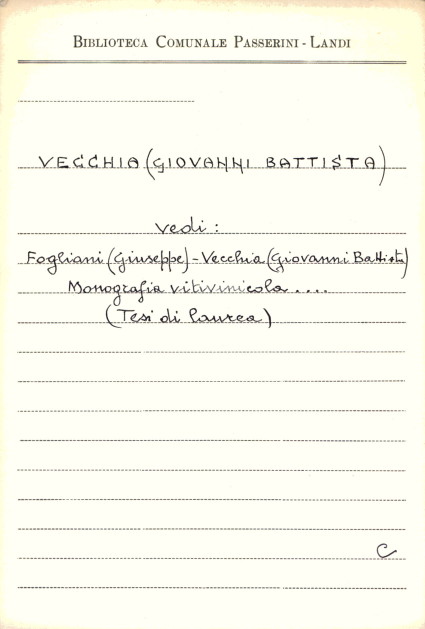 BIBLIOTECA COMUNALE PASSERINI - LANDI
VECCHIA (GIOVANNI BATTISTA)
vedi :
Fogliani (Giuseppe) - Vecchia (Giovanni Battista)
Monografia vitivinicola ....
(Tesi di laurea)
C